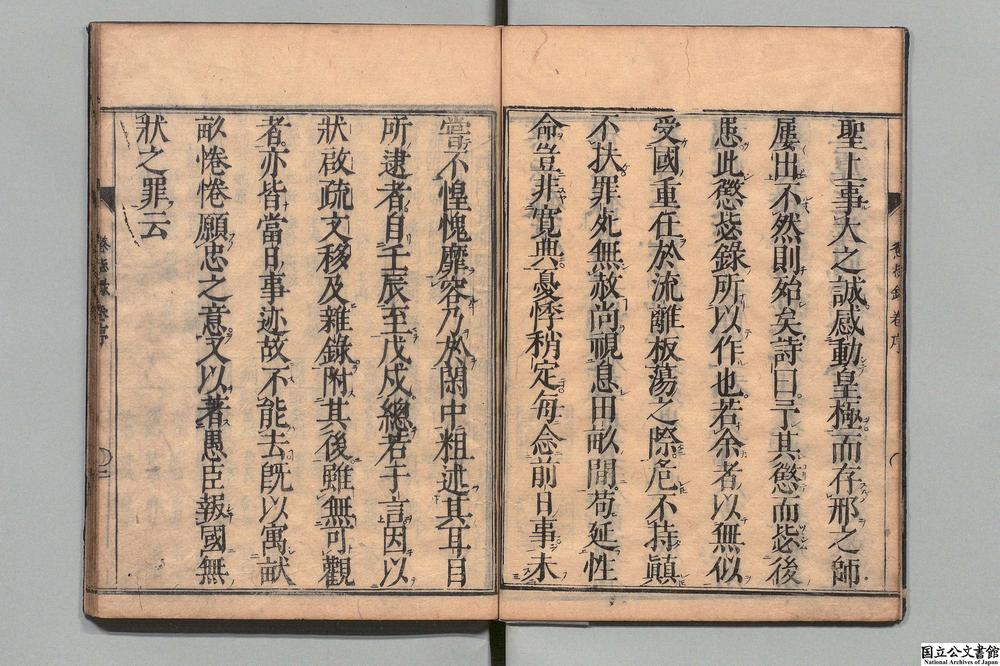 聖上事大之誠感動皇極而存邢之師
屢出不然則殆矣詩曰予其懲而毖後
患此懲毖錄所以作也若余者以無似
受國重任於流離板蕩之際危不持顛
不扶罪死無赦尚視息田畝間苟延性
命豈非寬典憂悸稍定每念前日事未
嘗不惶愧靡容乃於閑中粗述其耳目
所逮者自壬辰至戊戌總若干言因以
狀啟疏文移及雜錄附其後雖無可觀
者亦皆當日事迹故不能去既以寓畎
畝惓惓願忠之意又以著愚臣報國無
狀之罪云
国立公文書館
National Archives of Japan